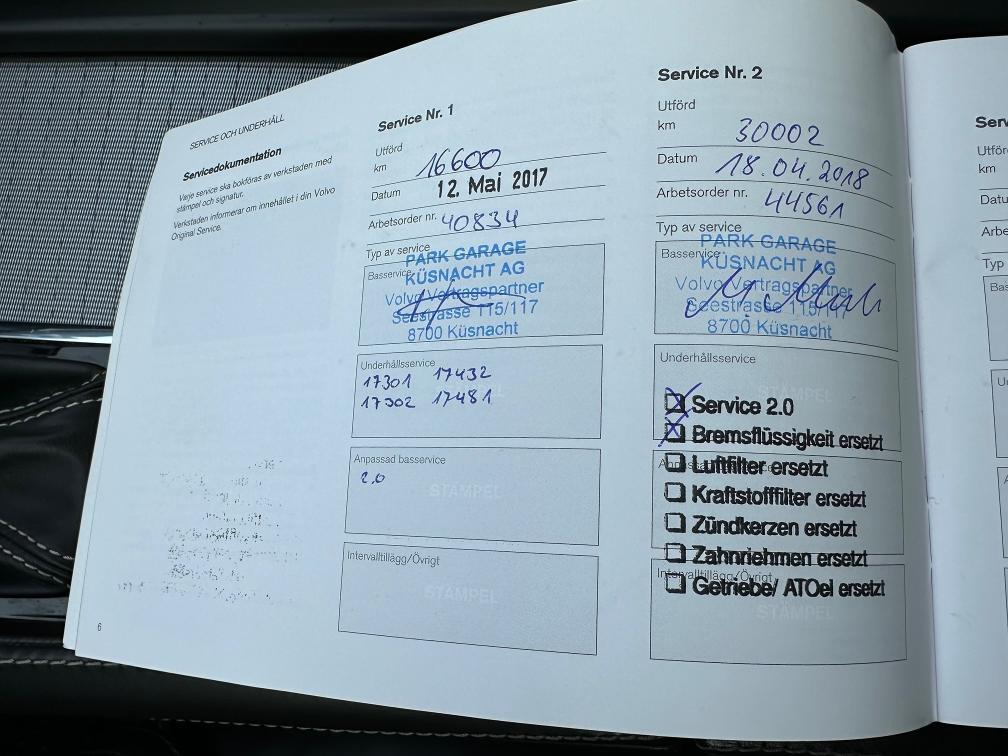 SERVICE OCH UNDERHÅLL
Servicedokumentation
Varje service ska bokföras av verkstaden med
stämpel och signatur.
Verkstaden informerar om innehållet i din Volvo
Original Service.
6
Service Nr. 1
Utförd
km 16600
Datum 12. Mai 2017
Arbetsorder nr. 40834
Typ av service
Basservice
PARK GARAGE
KÜSNACHT AG
Volvo Vertragspartner
Seestrasse 115/117
8700 Küsnacht
Underhållsservice
17301 17432
17302 17481
Anpassad basservice
2.0
STÄMPEL
Intervalltillägg/Övrigt
STÄMPEL
Service Nr. 2
Utförd
km 30002
Datum 18.04.2018
Arbetsorder nr. 44561
Typ av service
Basservice
PARK GARAGE
KÜSNACHT AG
Volvo Vertragspartner
Seestrasse 115/117
8700 Küsnacht
Underhållsservice
STÄMPEL
Service 2.0
Bremsflüssigkeit ersetzt
Luftfilter ersetzt
Kraftstofffilter ersetzt
Zündkerzen ersetzt
Zahnriehmen ersetzt
Intervalltillägg/Övrigt
Getriebe/ ATOel ersetzt
STÄMPEL
Serv
Utförd
km
Datu
Arbe
Typ
Bas